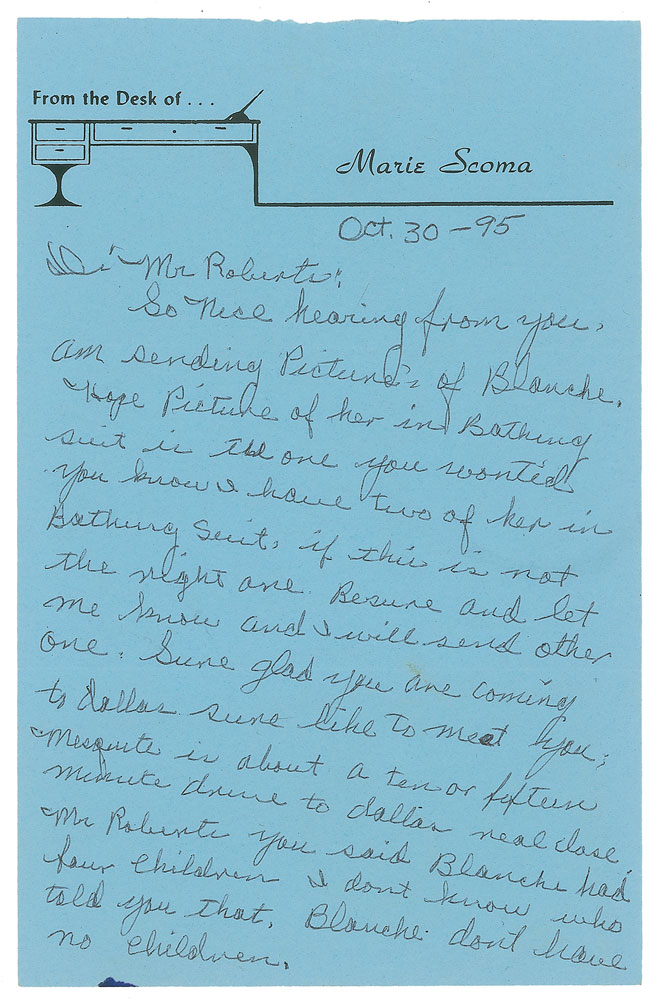 From the Desk of . . .
Marie Scoma
Oct. 30 - 95
Hi Mr Roberts:
So Nice hearing from you.
am sending Picture's of Blanche.
Hope Picture of her in Bathing
suit is the one you wanted
you know I have two of her in
Bathing Suit, if this is not
the right one. Besure and let
me know and I will send other
one. Sure glad you are coming
to dallas sure like to meet you.
Mesquite is about a ten or fifteen
minute drive to dallas real close.
Mr Roberts you said Blanche had
four Children I dont know who
told you that. Blanche dont have
no Children.